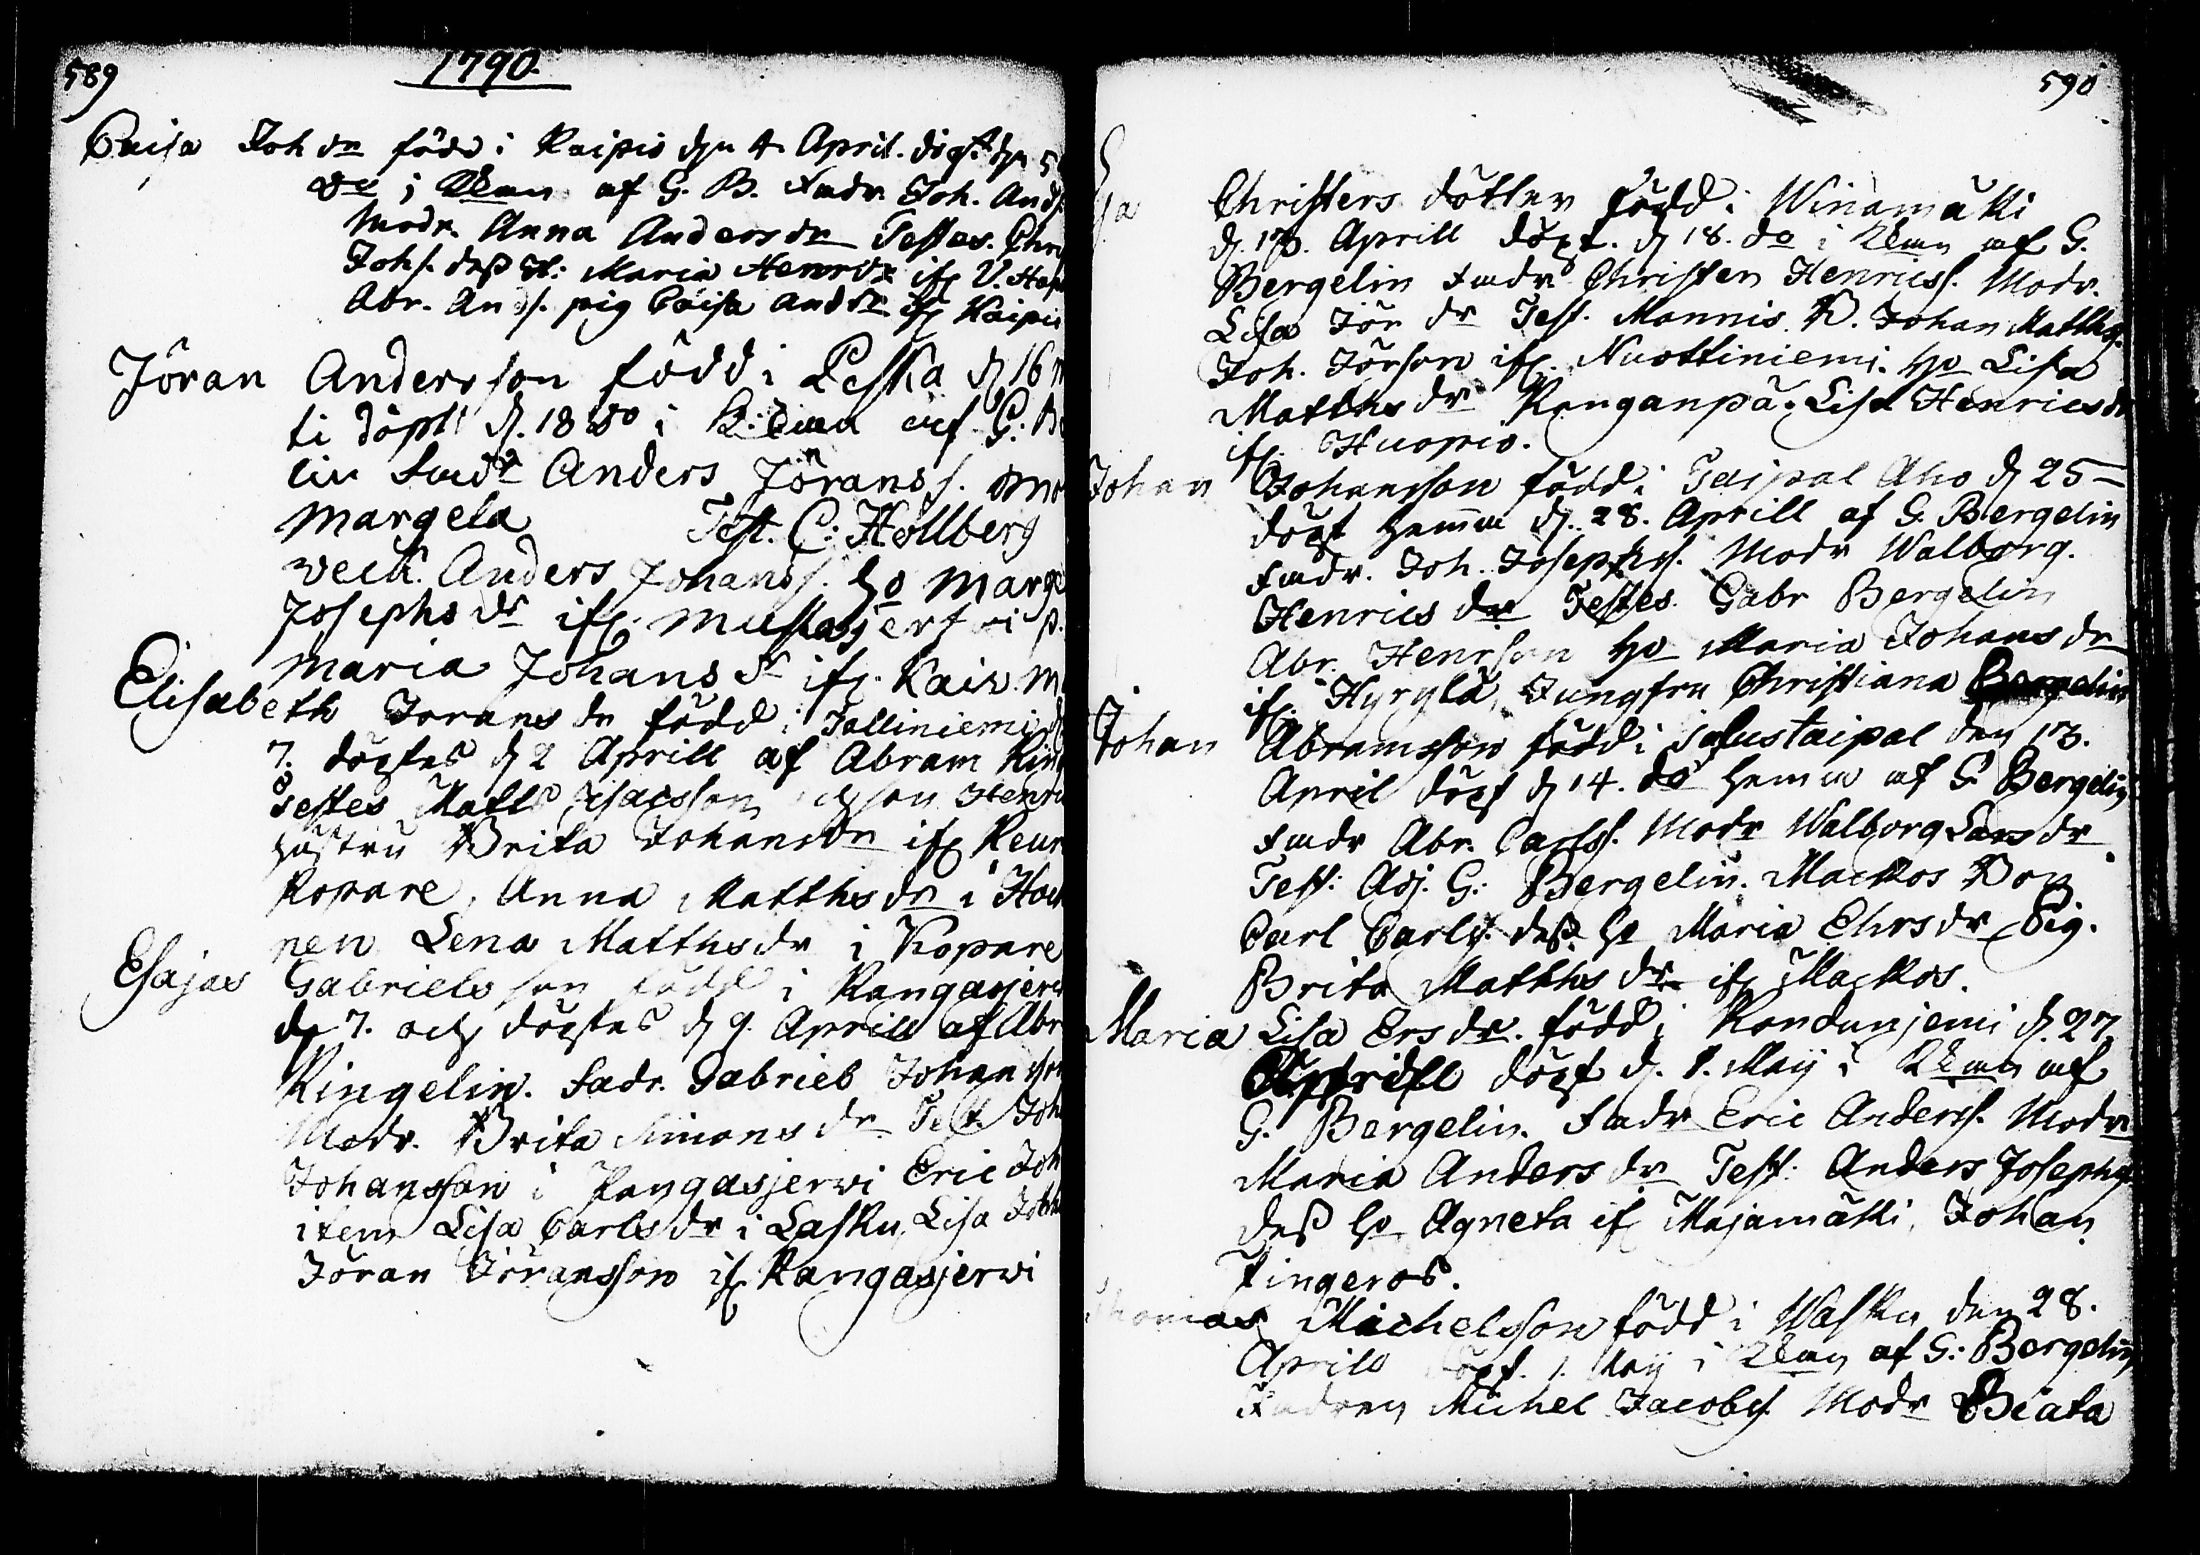 589
1790.
Caisa Joh dr född i Kaipis dn 4 April. döpt dn 5
do i Kkan af G. B. Fadr. Joh. Ands.
Modr. Anna Anders dr Testes. Chr
Johs. dess H: Maria Henrdr ifr. V.
Abr. Ands. pig Caisa And dr ifr Kaipis
Jöran Andersson född i Leska d 16
ti döpt d. 18 do i K: af G: Be
lin Fadr Anders Jöranss. Mo
Margeta Test. C: Hollberg
Anders Johanss. ho Marge
Josephs dr ifr. Mustasjerfwi p.
Maria Johans dr ifr. Kais
Elisabeth Jorans dr född i Talliniemi d
7. döptes d 2 Aprill af Abram Rin
Testes Matts Isacsson Henri
hustru Brita Johansdr ifr
Kopare, Anna Matths dr i
nen Lena Matthsdr i Kopare
Esajas Gabriels son född i Kangasjerw
d 7. och döptes d 9. Aprill af Abr
Ringelin. Fadr. Gabriel Johansson
Modr. Brita Simons dr Test. Joh
Johansson i Kangasjerwi Eric Joh
item Lisa Carls dr i Lasku, Lisa Joh
Jöran Jöransson ifr Kangasjerwi
590
Christers dotter född i Winamäki
d. 17. Aprill döpt. d 18. do i Kkan af G.
Bergelin Fadr Christer Henricss. Modr.
Lisa Jör dr Test. Monnis B. Johan Matths.
Joh. Jörson ifr. Nuottiniemi. ho Lisa
Matths dr Kanganpä. Lisa Henrics dr
ifr. Huopio.
Johan Johansson född i Taipal Aho d 25
döpt hemma d. 28. Aprill af G. Bergelin
Fadr. Joh. Josephs. Modr Walborg.
Henrics dr Testes. Gabr Bergelin
Abr. Henrson ho Maria Johans dr
ifr. Hyrylä, Jungfru Christiana Bergelin
Johan Abramsson född i Salustaipal den 13.
April döpt d 14. do hemma af G. Bergelin
Fadr Abr. Carlss. Modr Walborg Lars dr
Test: Adj. G: Bergelin. Mackos Bon
Carl Carls. dess ho Maria Ehrs dr Pig.
Brita Matths dr ifr Mackos.
Maria Lisa Ers dr. född i Kondunjemi d. 27
Aprill döpt d. 1. Maij i Kkan af
G. Bergelin. Fadr Eric Anderss. Modr
Maria Anders dr Test: Anders Josephs
dess ho Agneta ifr Majamäki, Johan
Fingeroos.
Thomas Michelsson född i Wasku den 28.
Aprill döpt. 1. Maij i Kkan af G: Bergelin
Fadren Michel Jacobs. Modr Beata